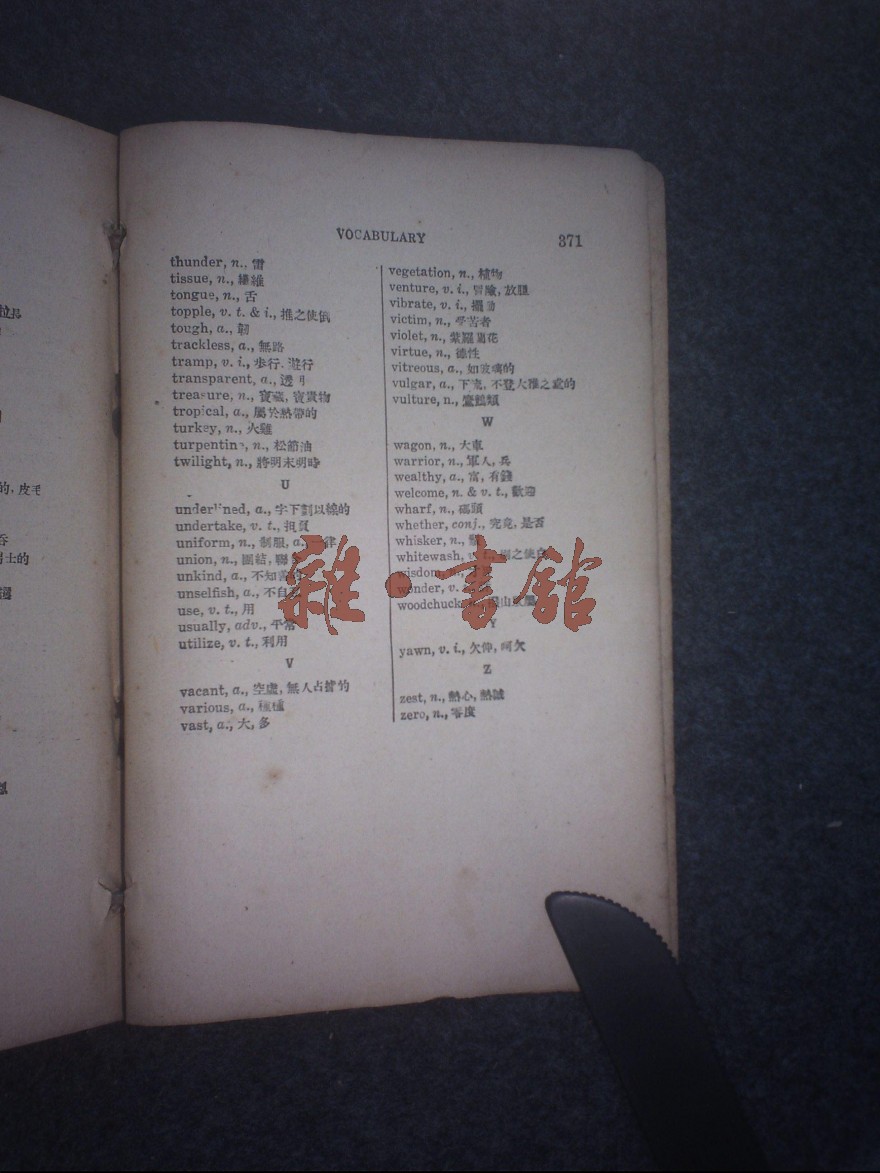 VOCABULARY
371
thunder, n., 雷
tissue, n., 纖維
tongue, n., 舌
topple, v. t. & i., 推之使
tough, a., 韌
trackless, a., 無路
tramp, v. i., 步行, 遊行
transparent, a., 透
treasure, n., 寶藏, 寶貴物
tropical, a., 屬於熱帶的
turkey, n., 火雞
turpentine, n., 松節油
twilight, n., 將明未明時
U
underlined, a., 字下劃以線的
undertake, v. t., 担負
uniform, n., 制服, a., 一律
union, n., 團結, 聯
unkind, a., 不知
unselfish, a., 不自
use, v. t., 用
usually, adv., 平常
utilize, v. t., 利用
V
vacant, a., 空虛, 無人占據的
various, a., 種種
vast, a., 大, 多
vegetation, n., 植物
venture, v. i., 冒險, 放膽
vibrate, v. i., 擺動
victim, n., 受苦者
violet, n., 紫羅蘭花
virtue, n., 德性
vitreous, a., 如玻璃的
vulgar, a., 下流, 不登大雅之堂的
vulture, n.,
W
wagon, n., 大車
warrior, n., 軍人, 兵
wealthy, a., 富, 有錢
welcome, n. & v. t., 歡迎
wharf, n., 碼頭
whether, conj., 究竟, 是否
whisker, n.,
whitewash, v. t., 之使白
wisdom,
wonder, v.
woodchuck,
Y
yawn, v. i., 欠伸, 呵欠
Z
zest, n., 熱心, 熱誠
zero, n., 零度
的, 皮毛
雜·書館